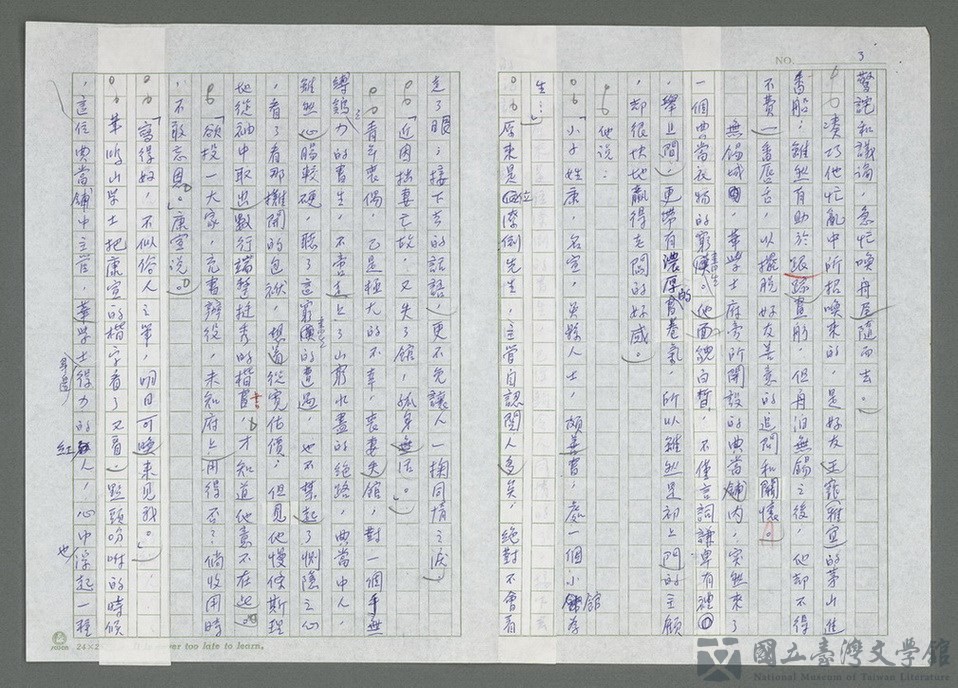 NO. 3
警詫和議論,急忙喚舟尾隨而去。
湊巧他忙亂中所招喚來的,是好友王寵雅宜的茅山進
香船;雖然有助於跟踪畫舫,但舟泊無錫之後,他却不得
不費一番唇舌,以擺脫好友善意的追問和關懷。
無錫城,華學士府旁所開設的典當舖內,突然來了
一個典當衣物的窮書生。他面貌白皙,不僅言詞謙卑有禮
,舉止間,更帶有濃厚的書卷氣,所以雖然是初上門的主顧
,却很快地贏得老闆的好感。
他說:
「小子姓康,名宣,吳縣人士,頗善書,處一個小館
生…」
原來是位潦倒先生,主管自認閱人多矣,絕對不會看
走了眼;接下去的話語,更不免讓人一掬同情之淚:
「近因拙妻亡故,又失了館,孤身無活。」
青年喪偶,已是極大的不幸,喪妻失館,對一個手無
縛鷄力的書生,不啻走上了山窮水盡的絕路,典當中人,
雖然心腸較硬,聽了這窮書生的遭遇,也不禁起了惻隱之心
,看了看那攤開的包袱,想道從寬估價;但見他慢條斯理
地從袖中取出數行端楚挺秀的楷書,才知道他意不在此。
「欲投一大家,充書辦役,未知府上用得否?倘收用時
,不敢忘恩。」康宣說。
「寫得好,不似俗人之筆,明日可喚來見我。」
華鴻山學士把康宣的楷字看了又看。點頭吩咐的時候
,這位典當舖中主管,華學士得力的紅人,心中浮起一種
也
24×25
never too late to learn.
國立臺灣文學館
National Museum of Taiwan Literature